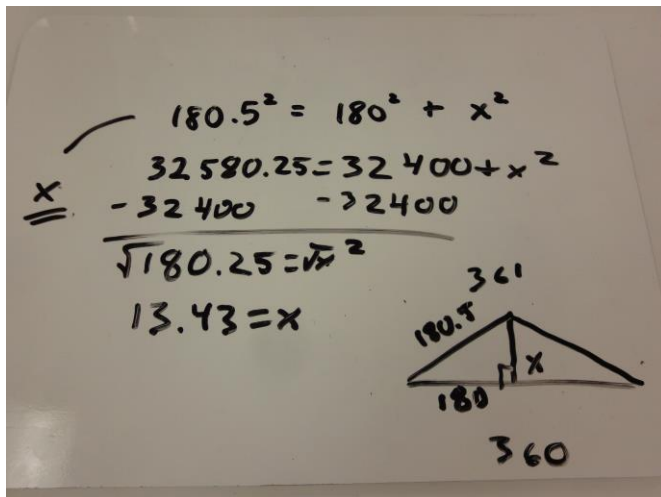 180.5² = 180² + x²
x
32580.25 = 32400 + x²
- 32400 - 32400
√180.25 = √x²
13.43 = x
361
180.5
x
180
360